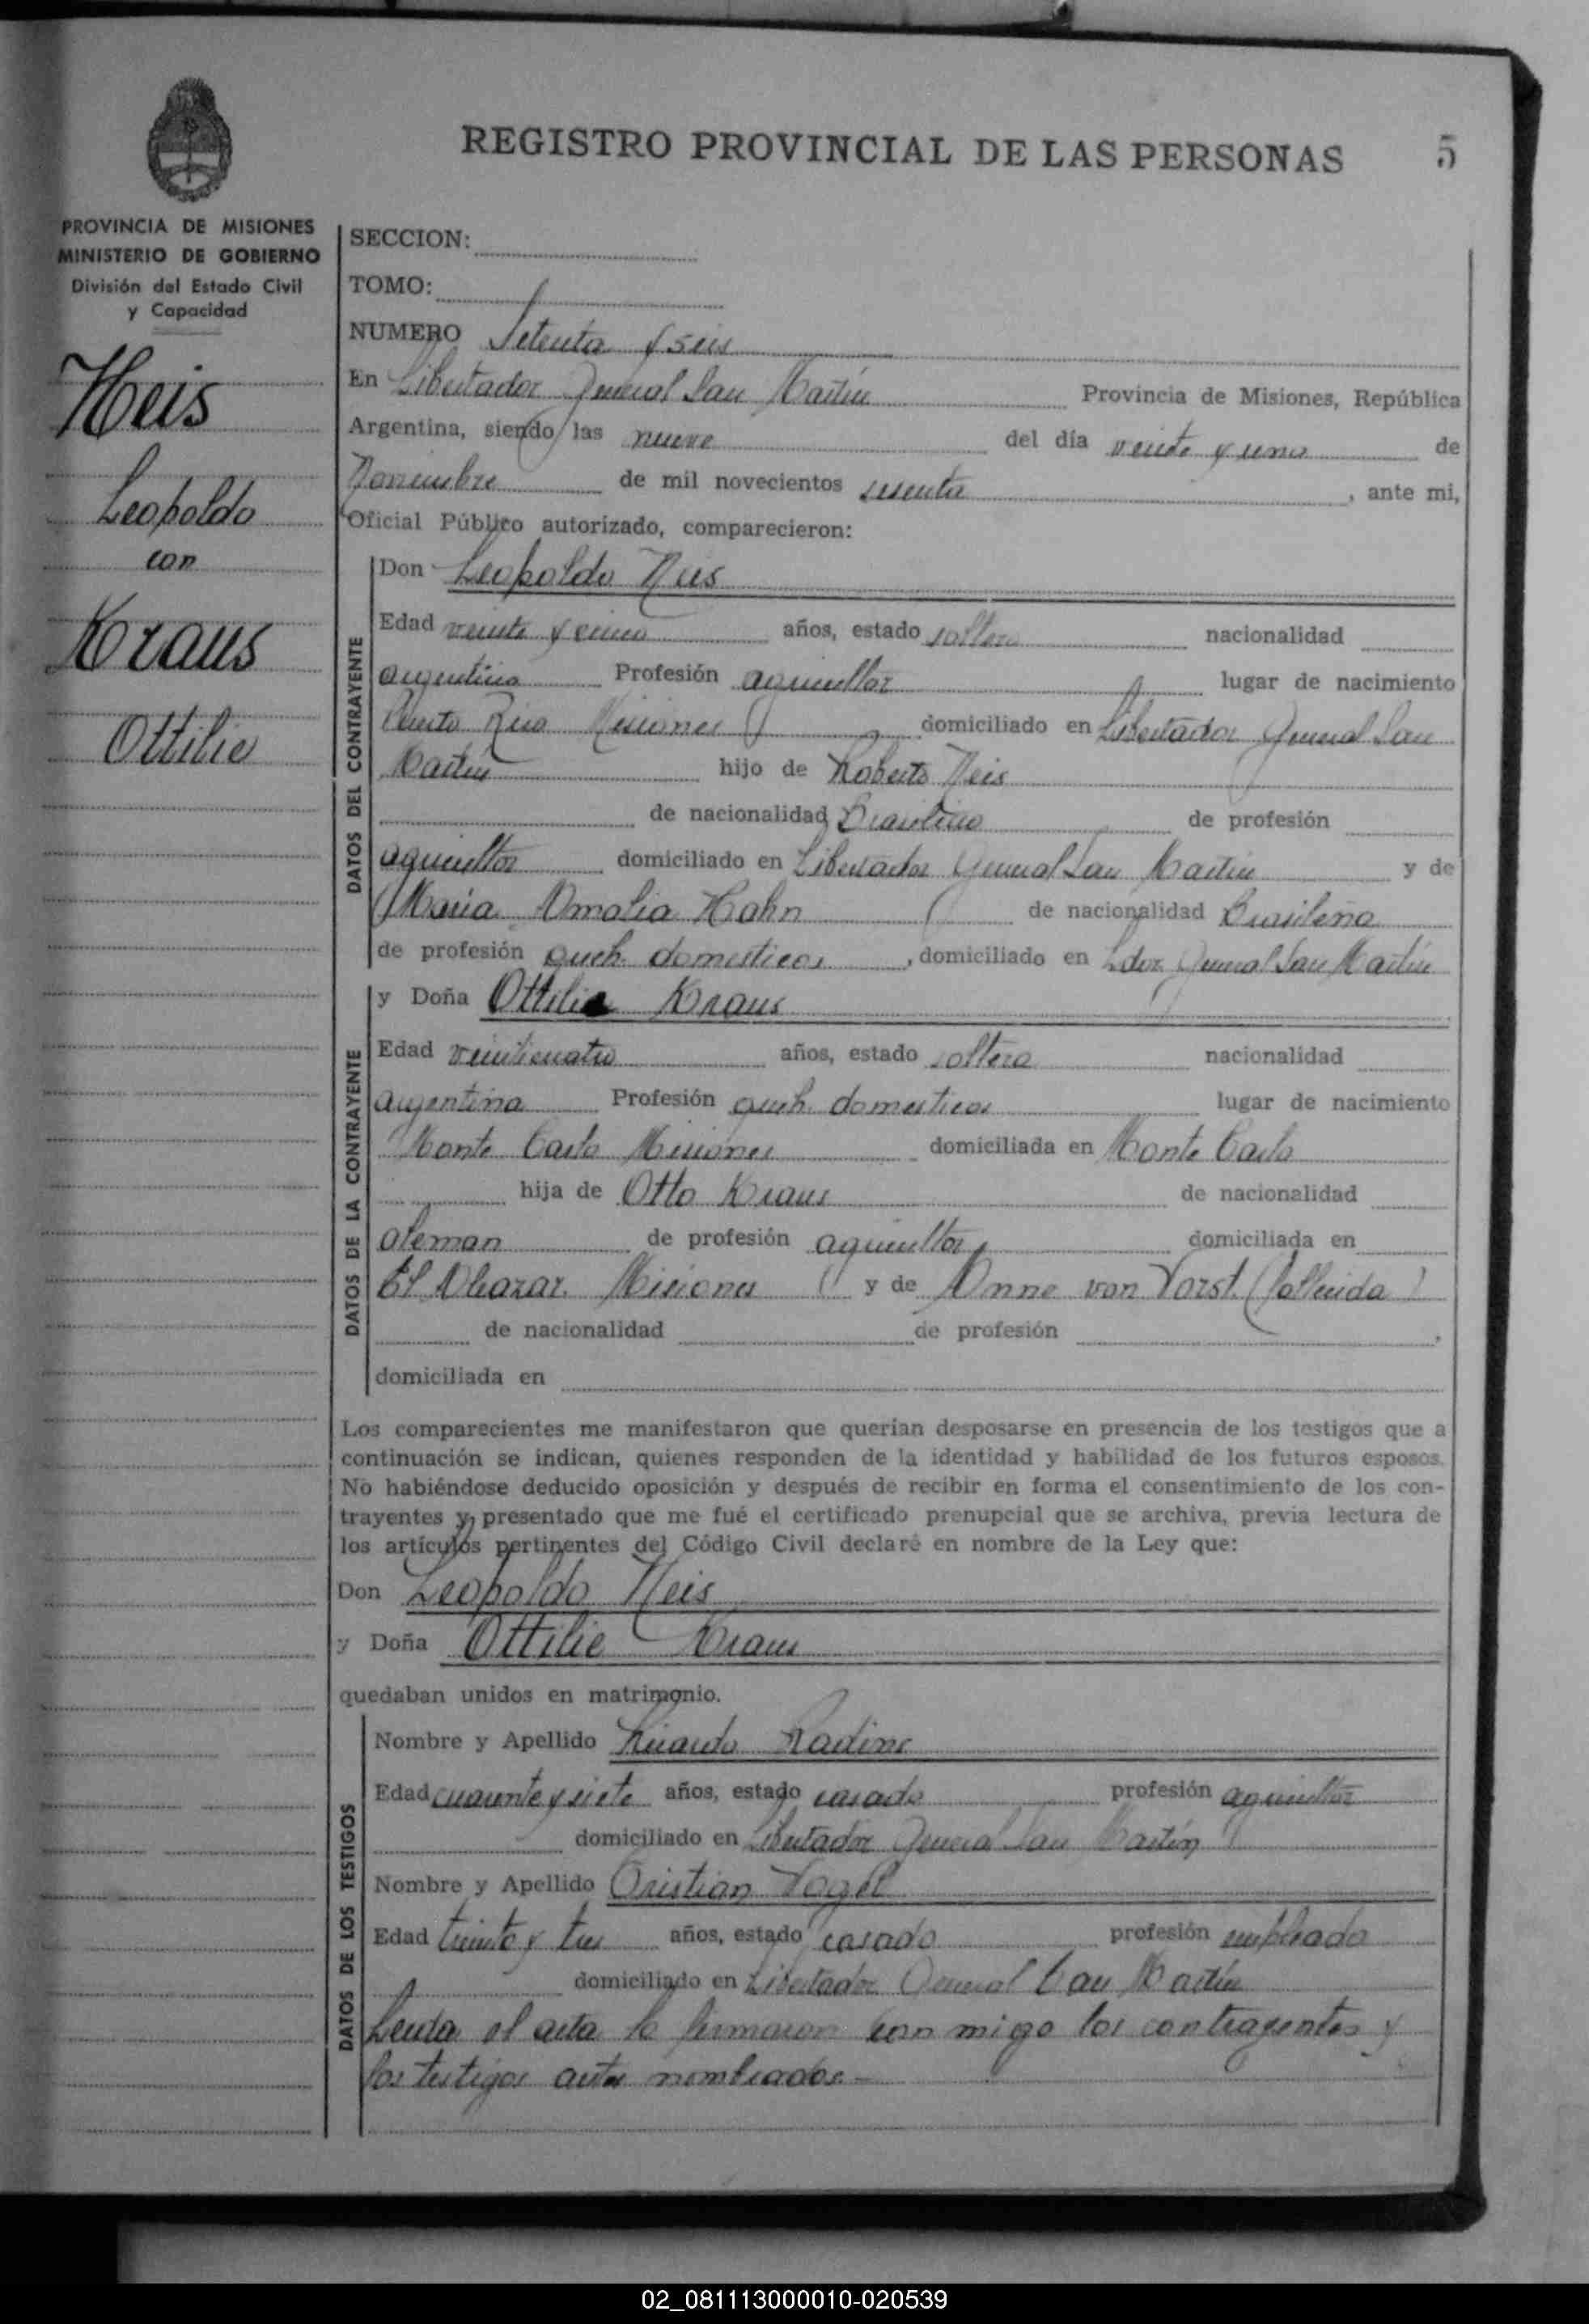 REGISTRO PROVINCIAL DE LAS PERSONAS 5
PROVINCIA DE MISIONES
MINISTERIO DE GOBIERNO
División del Estado Civil
y Capacidad
Neis
Leopoldo
con
Kraus
Ottilie
SECCION:
TOMO:
NUMERO Setenta y seis
En Libertador General San Martín Provincia de Misiones, República
Argentina, siendo las nueve del día veinte y uno de
Noviembre de mil novecientos sesenta, ante mi,
Oficial Público autorizado, comparecieron:
DATOS DEL CONTRAYENTE
Don Leopoldo Neis
Edad veinte y cinco años, estado soltero nacionalidad
argentino Profesión agricultor lugar de nacimiento
Puerto Rico Misiones domiciliado en Libertador General San
Martín hijo de Roberto Neis
de nacionalidad Brasilero de profesión
agricultor domiciliado en Libertador General San Martín y de
Maria Amalia Hahn de nacionalidad Brasileña
de profesión queh. domesticos, domiciliado en Ldor. General San Martín
DATOS DE LA CONTRAYENTE
y Doña Ottilie Kraus
Edad veinticuatro años, estado soltera nacionalidad
argentina Profesión queh. domesticos lugar de nacimiento
Monte Carlo Misiones domiciliada en Monte Carlo
hija de Otto Kraus de nacionalidad
aleman de profesión agricultor domiciliada en
El Alcazar. Misiones y de Anne von Vorst. (fallecida)
de nacionalidad de profesión
domiciliada en
Los comparecientes me manifestaron que querían desposarse en presencia de los testigos que a
continuación se indican, quienes responden de la identidad y habilidad de los futuros esposos.
No habiéndose deducido oposición y después de recibir en forma el consentimiento de los con-
trayentes y presentado que me fué el certificado prenupcial que se archiva, previa lectura de
los artículos pertinentes del Código Civil declaré en nombre de la Ley que:
Don Leopoldo Neis
y Doña Ottilie Kraus
quedaban unidos en matrimonio.
DATOS DE LOS TESTIGOS
Nombre y Apellido Ricardo
Edad cuarenta y siete años, estado casado profesión agricultor
domiciliado en Libertador General San Martín
Nombre y Apellido Cristian Vogel
Edad treinta y tres años, estado casado profesión empleado
domiciliado en Libertador General San Martín
Leida el acta la firmaron con migo los contrayentes y
los testigos antes nombrados.-
02_081113000010-020539